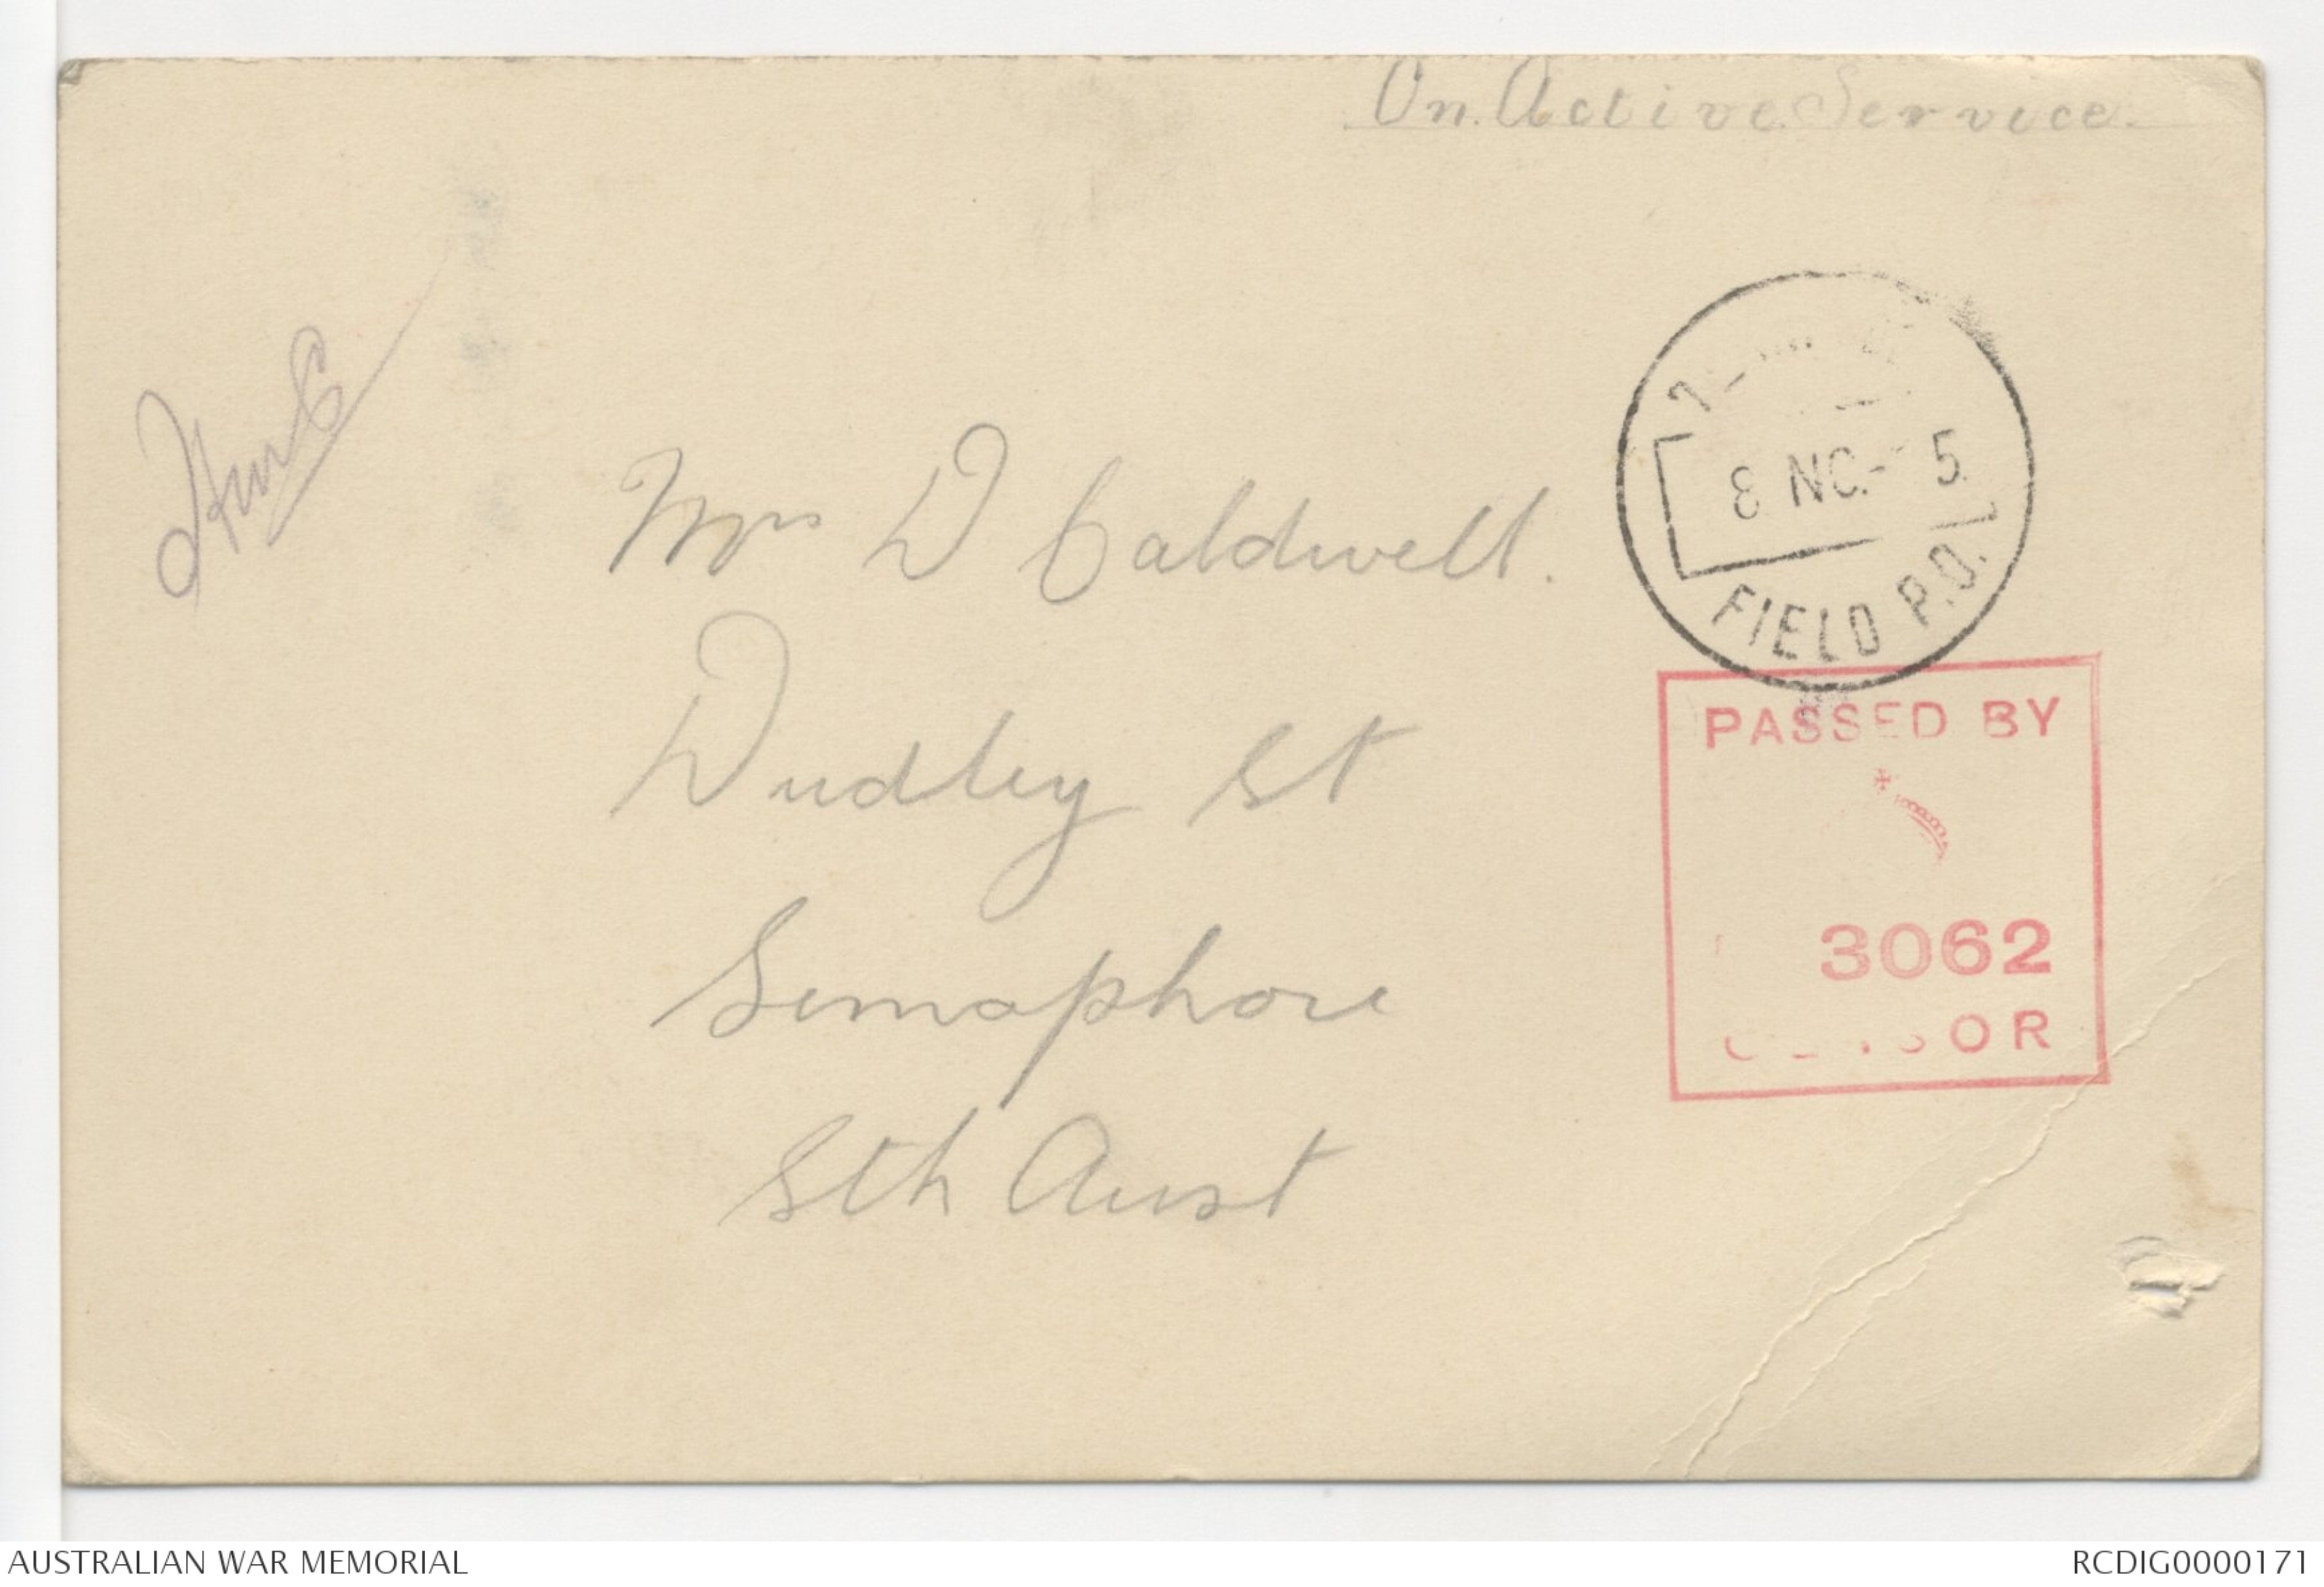 On Active Service.
Mrs D Caldwell.
Dudley St
Semaphore
Sth Aust
8 NO 5
FIELD P.O.
PASSED BY
3062
CENSOR
AUSTRALIAN WAR MEMORIAL
RCDIG0000171